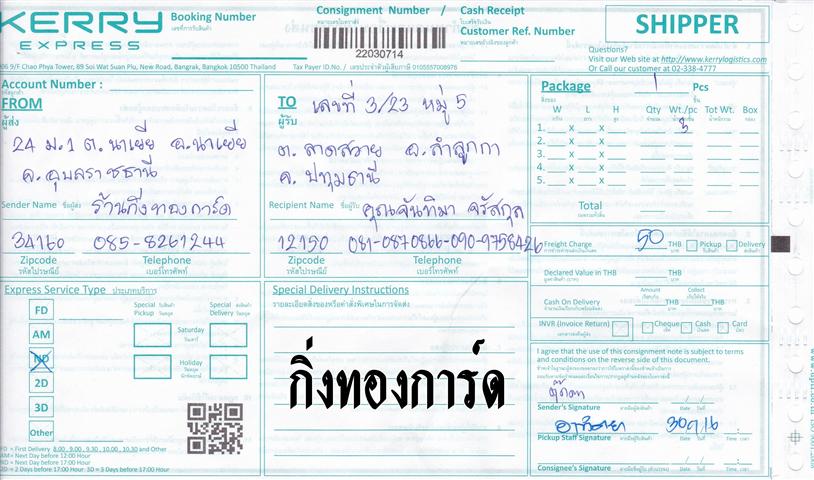 KERRY
EXPRESS
Booking Number
เลขที่การรับสินค้า
Consignment Number /
หมายเลขใบตราส่ง
22030714
Cash Receipt
ใบเสร็จรับเงิน
Customer Ref. Number
หมายเลขอ้างอิงของลูกค้า
SHIPPER
Questions?
Visit our Web site at http://www.kerrylogistics.com
Or Call our customer at 02-338-4777
906 9/F Chao Phya Tower, 89 Soi Wat Suan Plu, New Road, Bangrak, Bangkok 10500 Thailand
Tax Payer ID.No. / เลขประจำตัวผู้เสียภาษี 0105557008976
Account Number :
FROM
ผู้ส่ง
24 ม.1 ต.นาเยีย อ.นาเยีย
จ.อุบลราชธานี
Sender Name ชื่อผู้ส่ง ร้านกิ่งทองการ์ด
34160 085-8261244
Zipcode Telephone
รหัสไปรษณีย์ เบอร์โทรศัพท์
TO
ผู้รับ
เลขที่ 3/23 หมู่ 5
ต.ลาดสวาย อ.ลำลูกกา
จ.ปทุมธานี
Recipient Name ชื่อผู้รับ คุณจันทิมา จรัสกุล
12150 081-0870866-090-9758426
Zipcode Telephone
รหัสไปรษณีย์ เบอร์โทรศัพท์
Package 1 Pcs
W L H Qty Wt./pc Tot Wt. Box
1. X X 3
2. X X
3. X X
4. X X
5. X X
Total
Freight Charge 50 THB Pickup Delivery
Declared Value in THB THB
Amount Collect
Cash On Delivery THB THB
INVR (Invoice Return) Cheque Cash Card
Express Service Type ประเภทบริการ
FD
AM
ND
2D
3D
Other
Special Pickup
Special Delivery
Saturday
วันเสาร์
Holiday
วันหยุด
นักขัตฤกษ์
FD = First Delivery 8.00 , 9.00 , 9.30 , 10.00 , 10.30 and Other
AM=Next Day before 12:00 Hour
ND=Next Day before 17:00 Hour
2D = 2 Days before 17:00 Hour 3D = 3 Days before 17:00 Hour
Special Delivery Instructions
รายละเอียดสิ่งของหรือคำสั่งพิเศษในการจัดส่ง
กิ่งทองการ์ด
I agree that the use of this consignment note is subject to terms
and conditions on the reverse side of this document.
Sender's Signature ลายมือชื่อผู้ส่ง Date วันที่
Pickup Staff Signature Date วันที่ Time เวลา
Consignee's Signature Date วันที่ Time เวลา